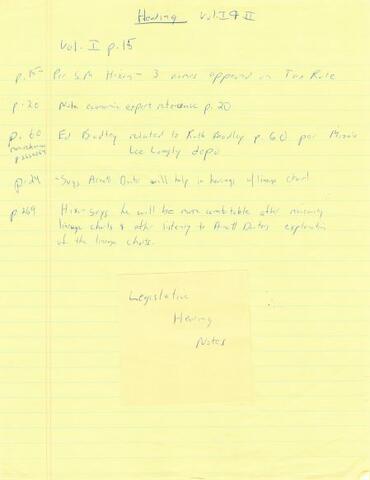 Hearing Vol. I & II
Vol. I p. 15
p. 15 Per Sam Hixon - 3 names appeared on Tax Role
p. 20 Note economic expert reference p. 20
p. 60 Ed Bradley related to Ruth Bradley p. 60 per
Lee Longly depo
p. 24 - Says Arnett Doctor will help in hearings w/ lineage chart
p. 269 Hixon says he will be more comfortable after
lineage charts & after listening to Arnett Doctors explanation
of the lineage charts.
Legislative
Hearing
Notes